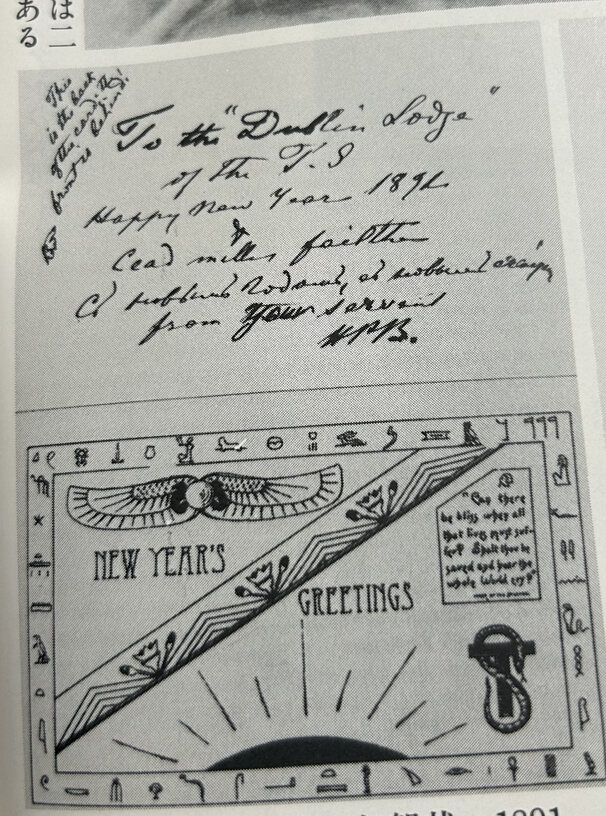 は二
ある
This
is the back
of the card; the
front is behind!
To the "Dublin Lodge"
of the T.S
Happy New Year 1891
&
Cead milles failthe
from your servant
HPB.
NEW YEAR'S
GREETINGS
"Can there
be bliss when all
that lives must suf-
fer? Shalt thou be
saved and hear the
whole world cry?"
1891